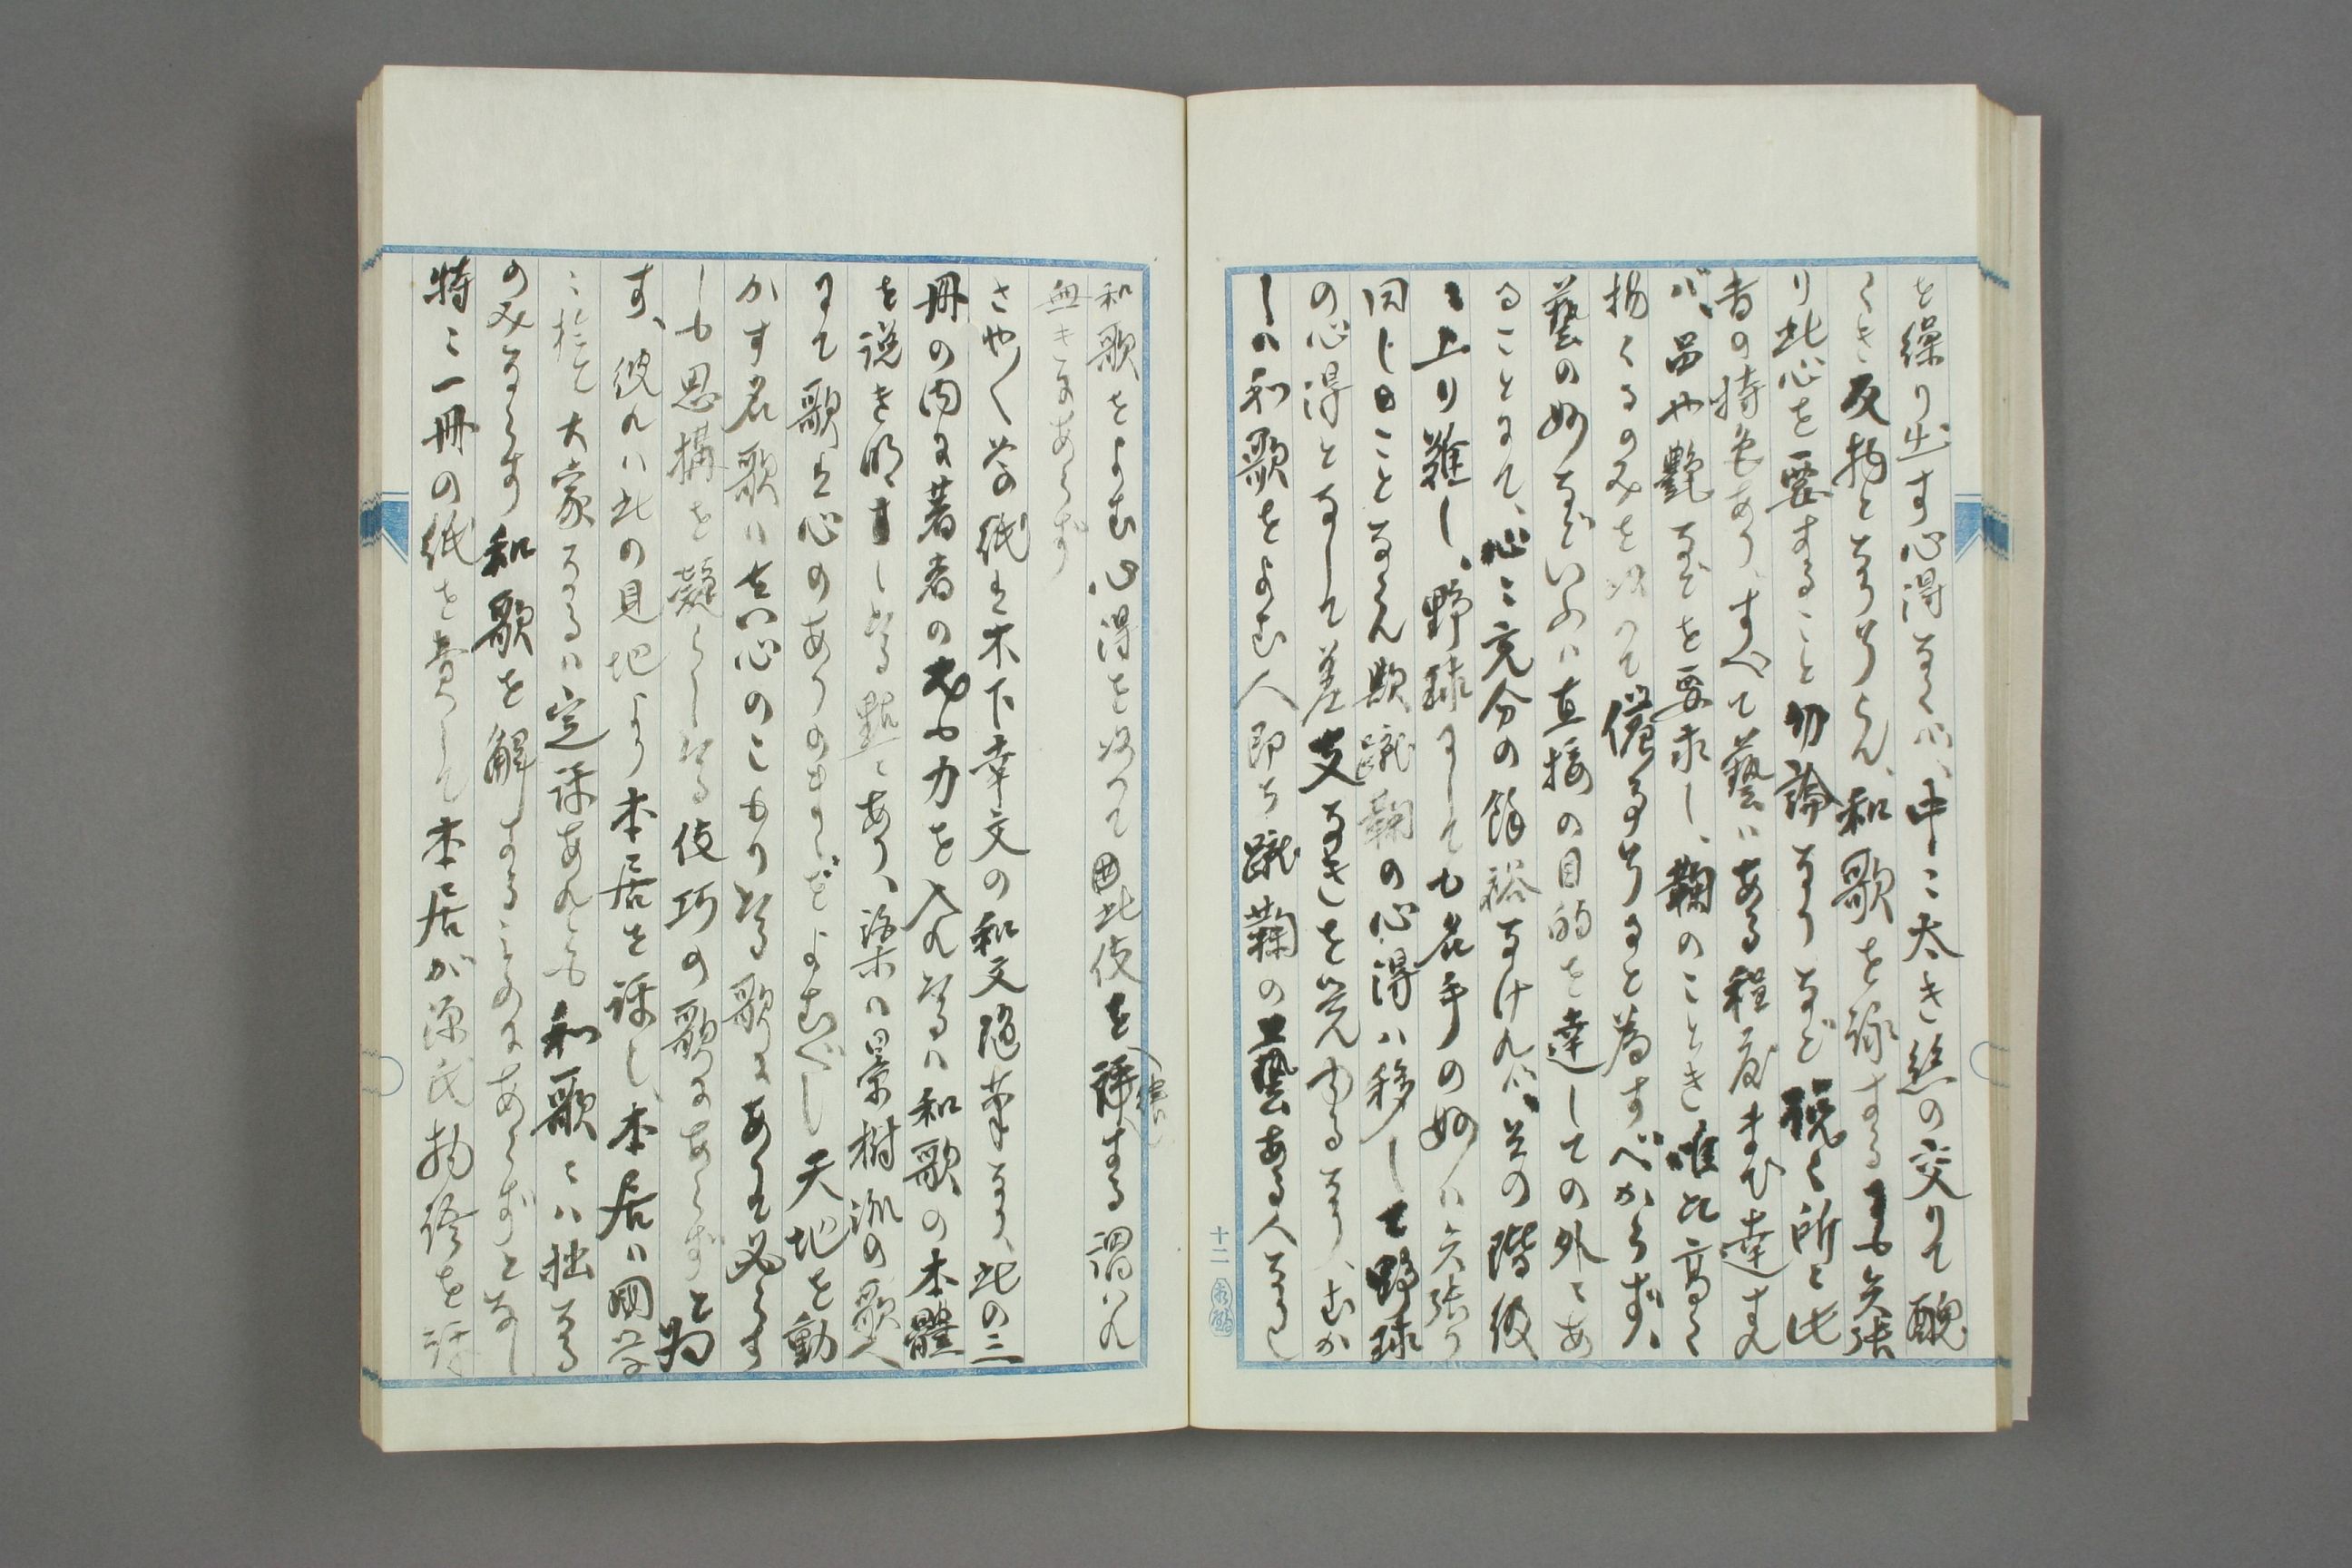 を繰り出す心得なくバ、中ニ太き絲の交りて醜
くき反物となりなん、和歌を詠するにも矢張
り此心を要すること勿論なりなど説く所ニ此
者の特色あり、すべて藝ハある程度まで達すれ
バ、品や艶などを要求し、鞠のごとき唯た高く
揚くるのみを以つて僅事なりと為すべからず、
藝の妙などいふハ直接の目的を達しての外ニあ
ることにて、心ニ充分の餘裕なけれバ、その階級
ニ上り難し、野球にしても名手の妙ハ矢張り
同しことならん歟蹴鞠の心得ハ移して野球
の心得となして差支なきを覚ゆるなり、むか
しの和歌をよむ人即ち蹴鞠の上藝ある人なるし
十二
和歌をよむ心得を以つて此伎を譯する謂はれ
無きにあらず
さやく草紙は木下幸文の和文随筆なり、此の三
冊の内に著者の尤も力を入れたるハ和歌の本體
を説き明ましたる點ニあり、流石ハ景樹派の歌人
にて歌は心のありのまゝをよむべし天地を動
かす名歌ハ真心のこもりたる歌にあらば必らす
しも思構を凝らしたる伎巧の歌にあらずと為
す、彼れハ此の見地より本居を評し、本居ハ國学
ニ於て大家なるハ定評あれとも和歌ニハ拙なる
のみならす和歌を解するものにあらずとなし
特ニ一冊の紙を費して本居が源氏物語を評